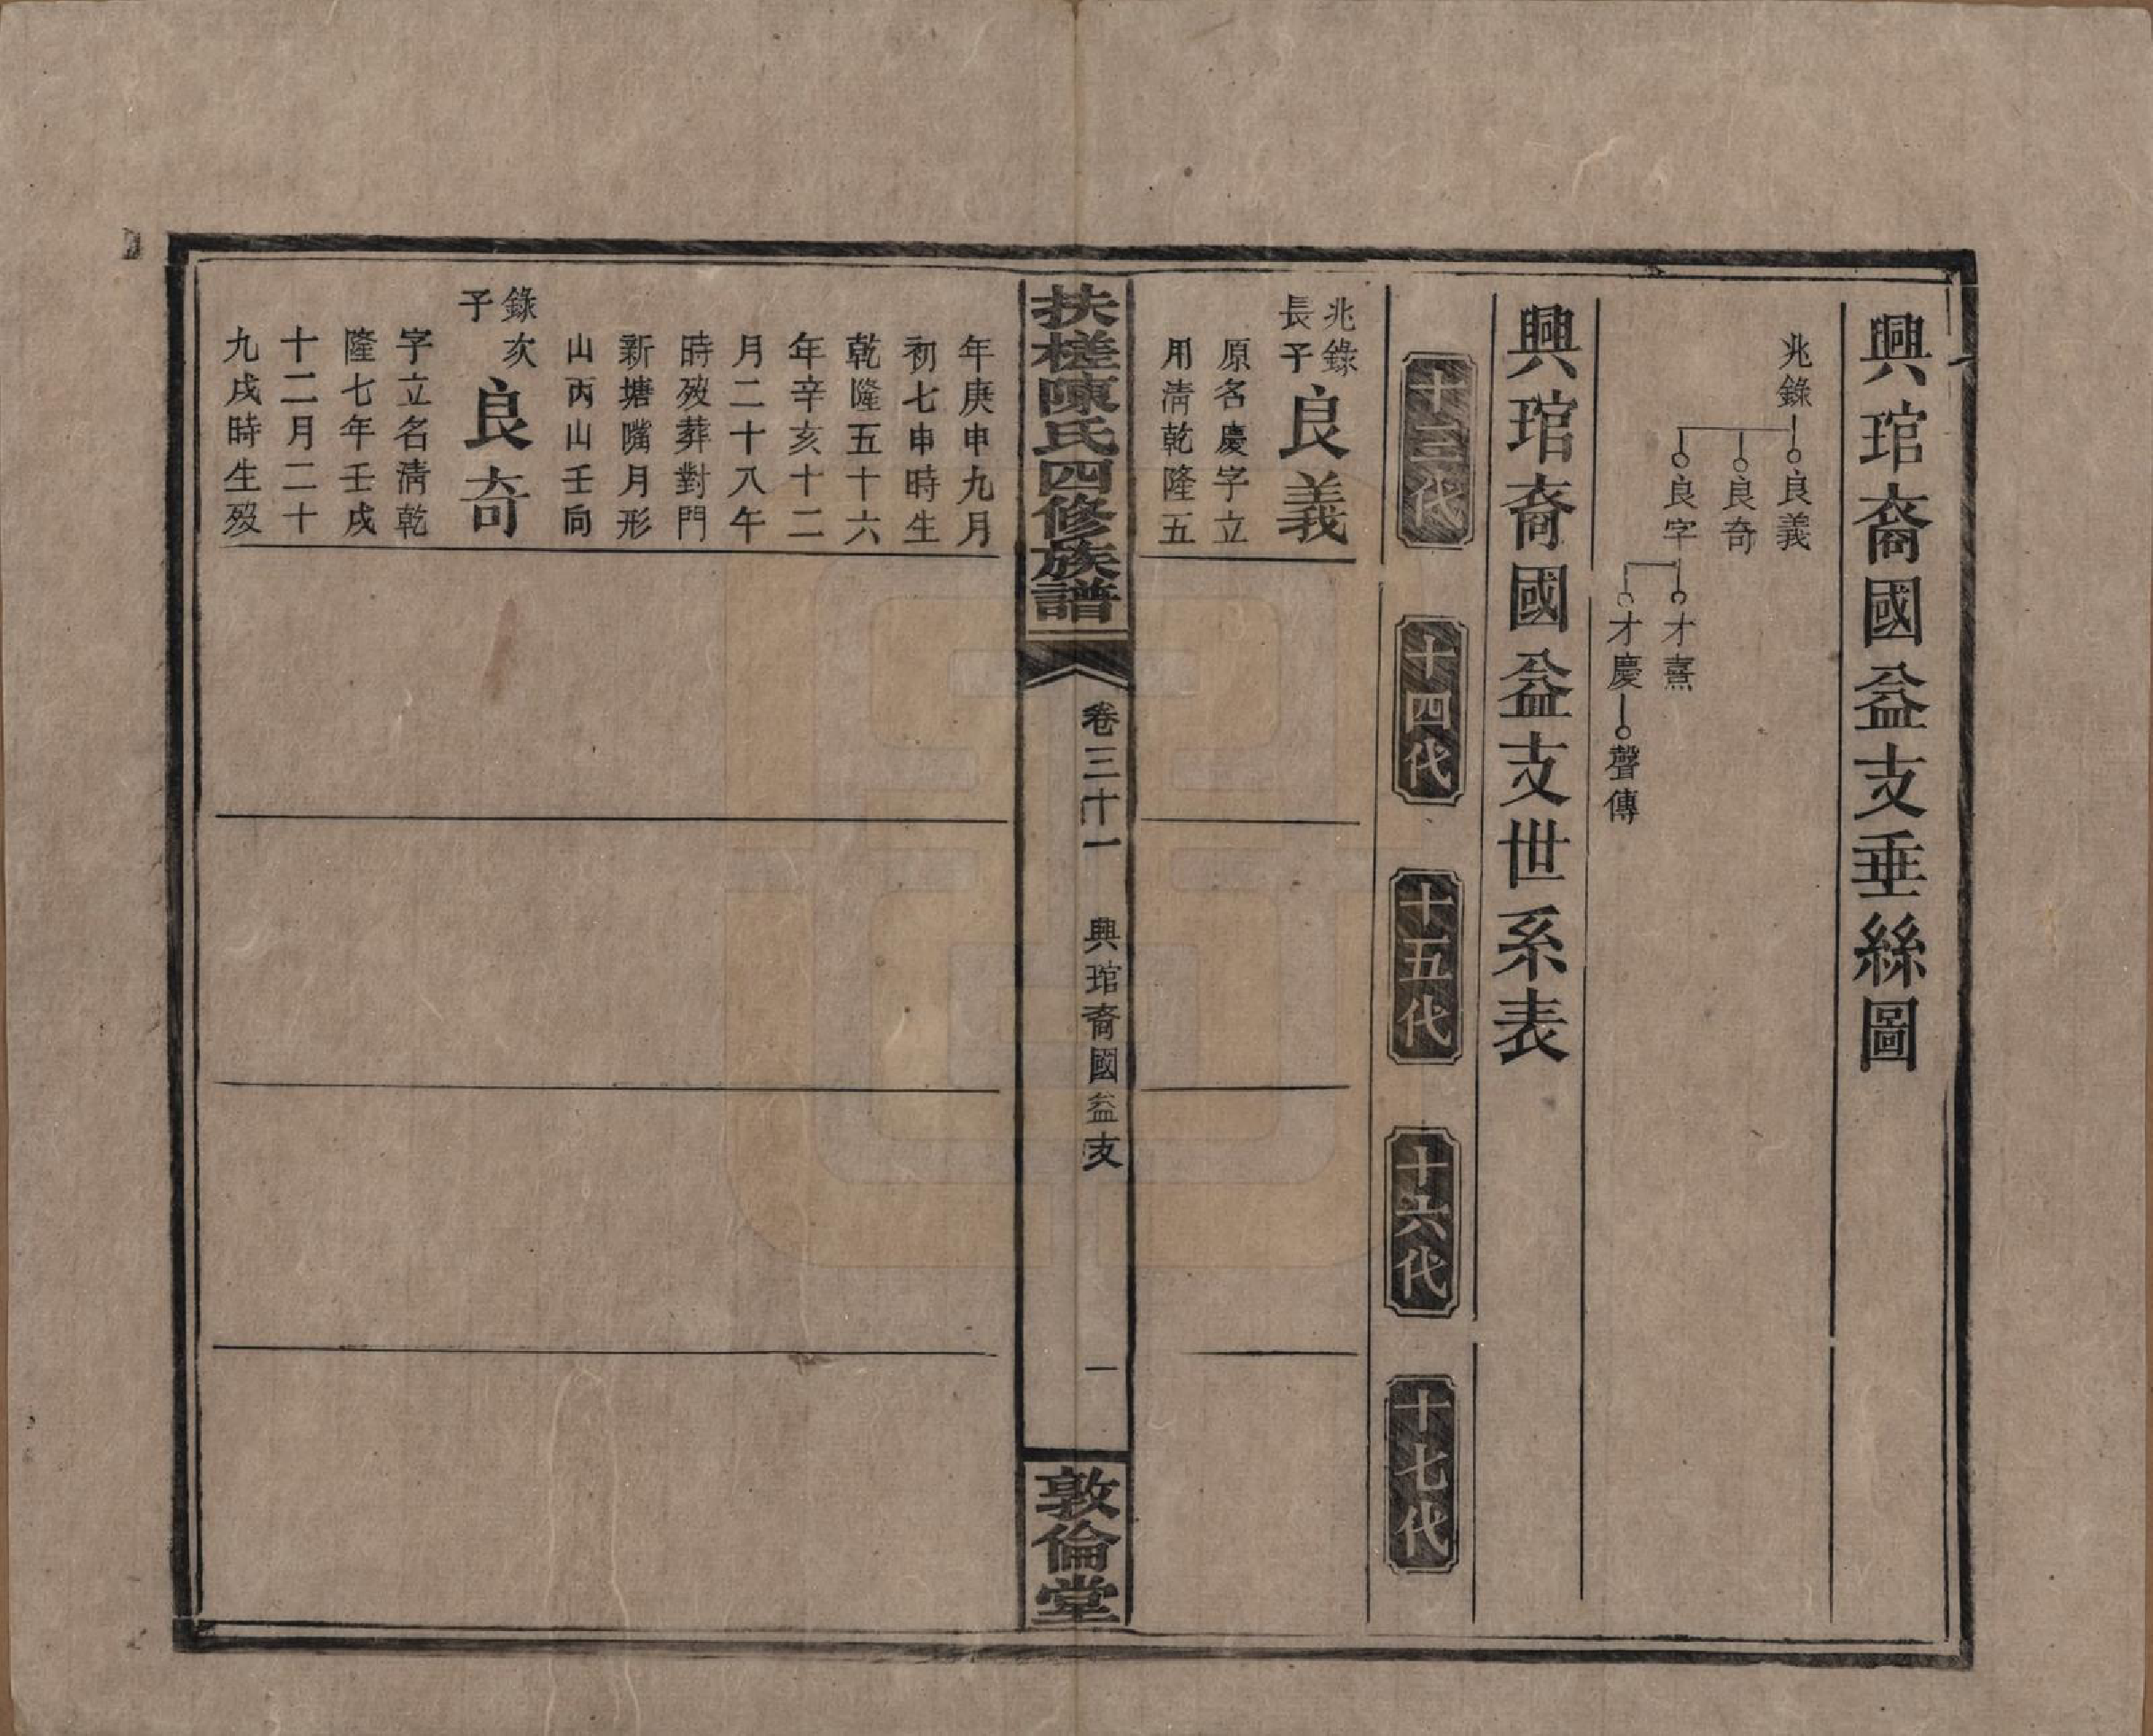 興琯裔國益支垂絲圖
兆錄
良義
良奇
良字
才熹
才慶
聲傳
興琯裔國益支世系表
十三代
十四代
十五代
十六代
十七代
兆錄
長子
良義
原名慶字立
用淸乾隆五
扶槎陳氏四修族譜
卷三十一
興琯裔國益支
一
敦倫堂
年庚申九月
初七申時生
乾隆五十六
年辛亥十二
月二十八午
時歿葬對門
新塘嘴月形
山丙山壬向
錄次
子
良奇
字立名淸乾
隆七年壬戌
十二月二十
九戌時生歿